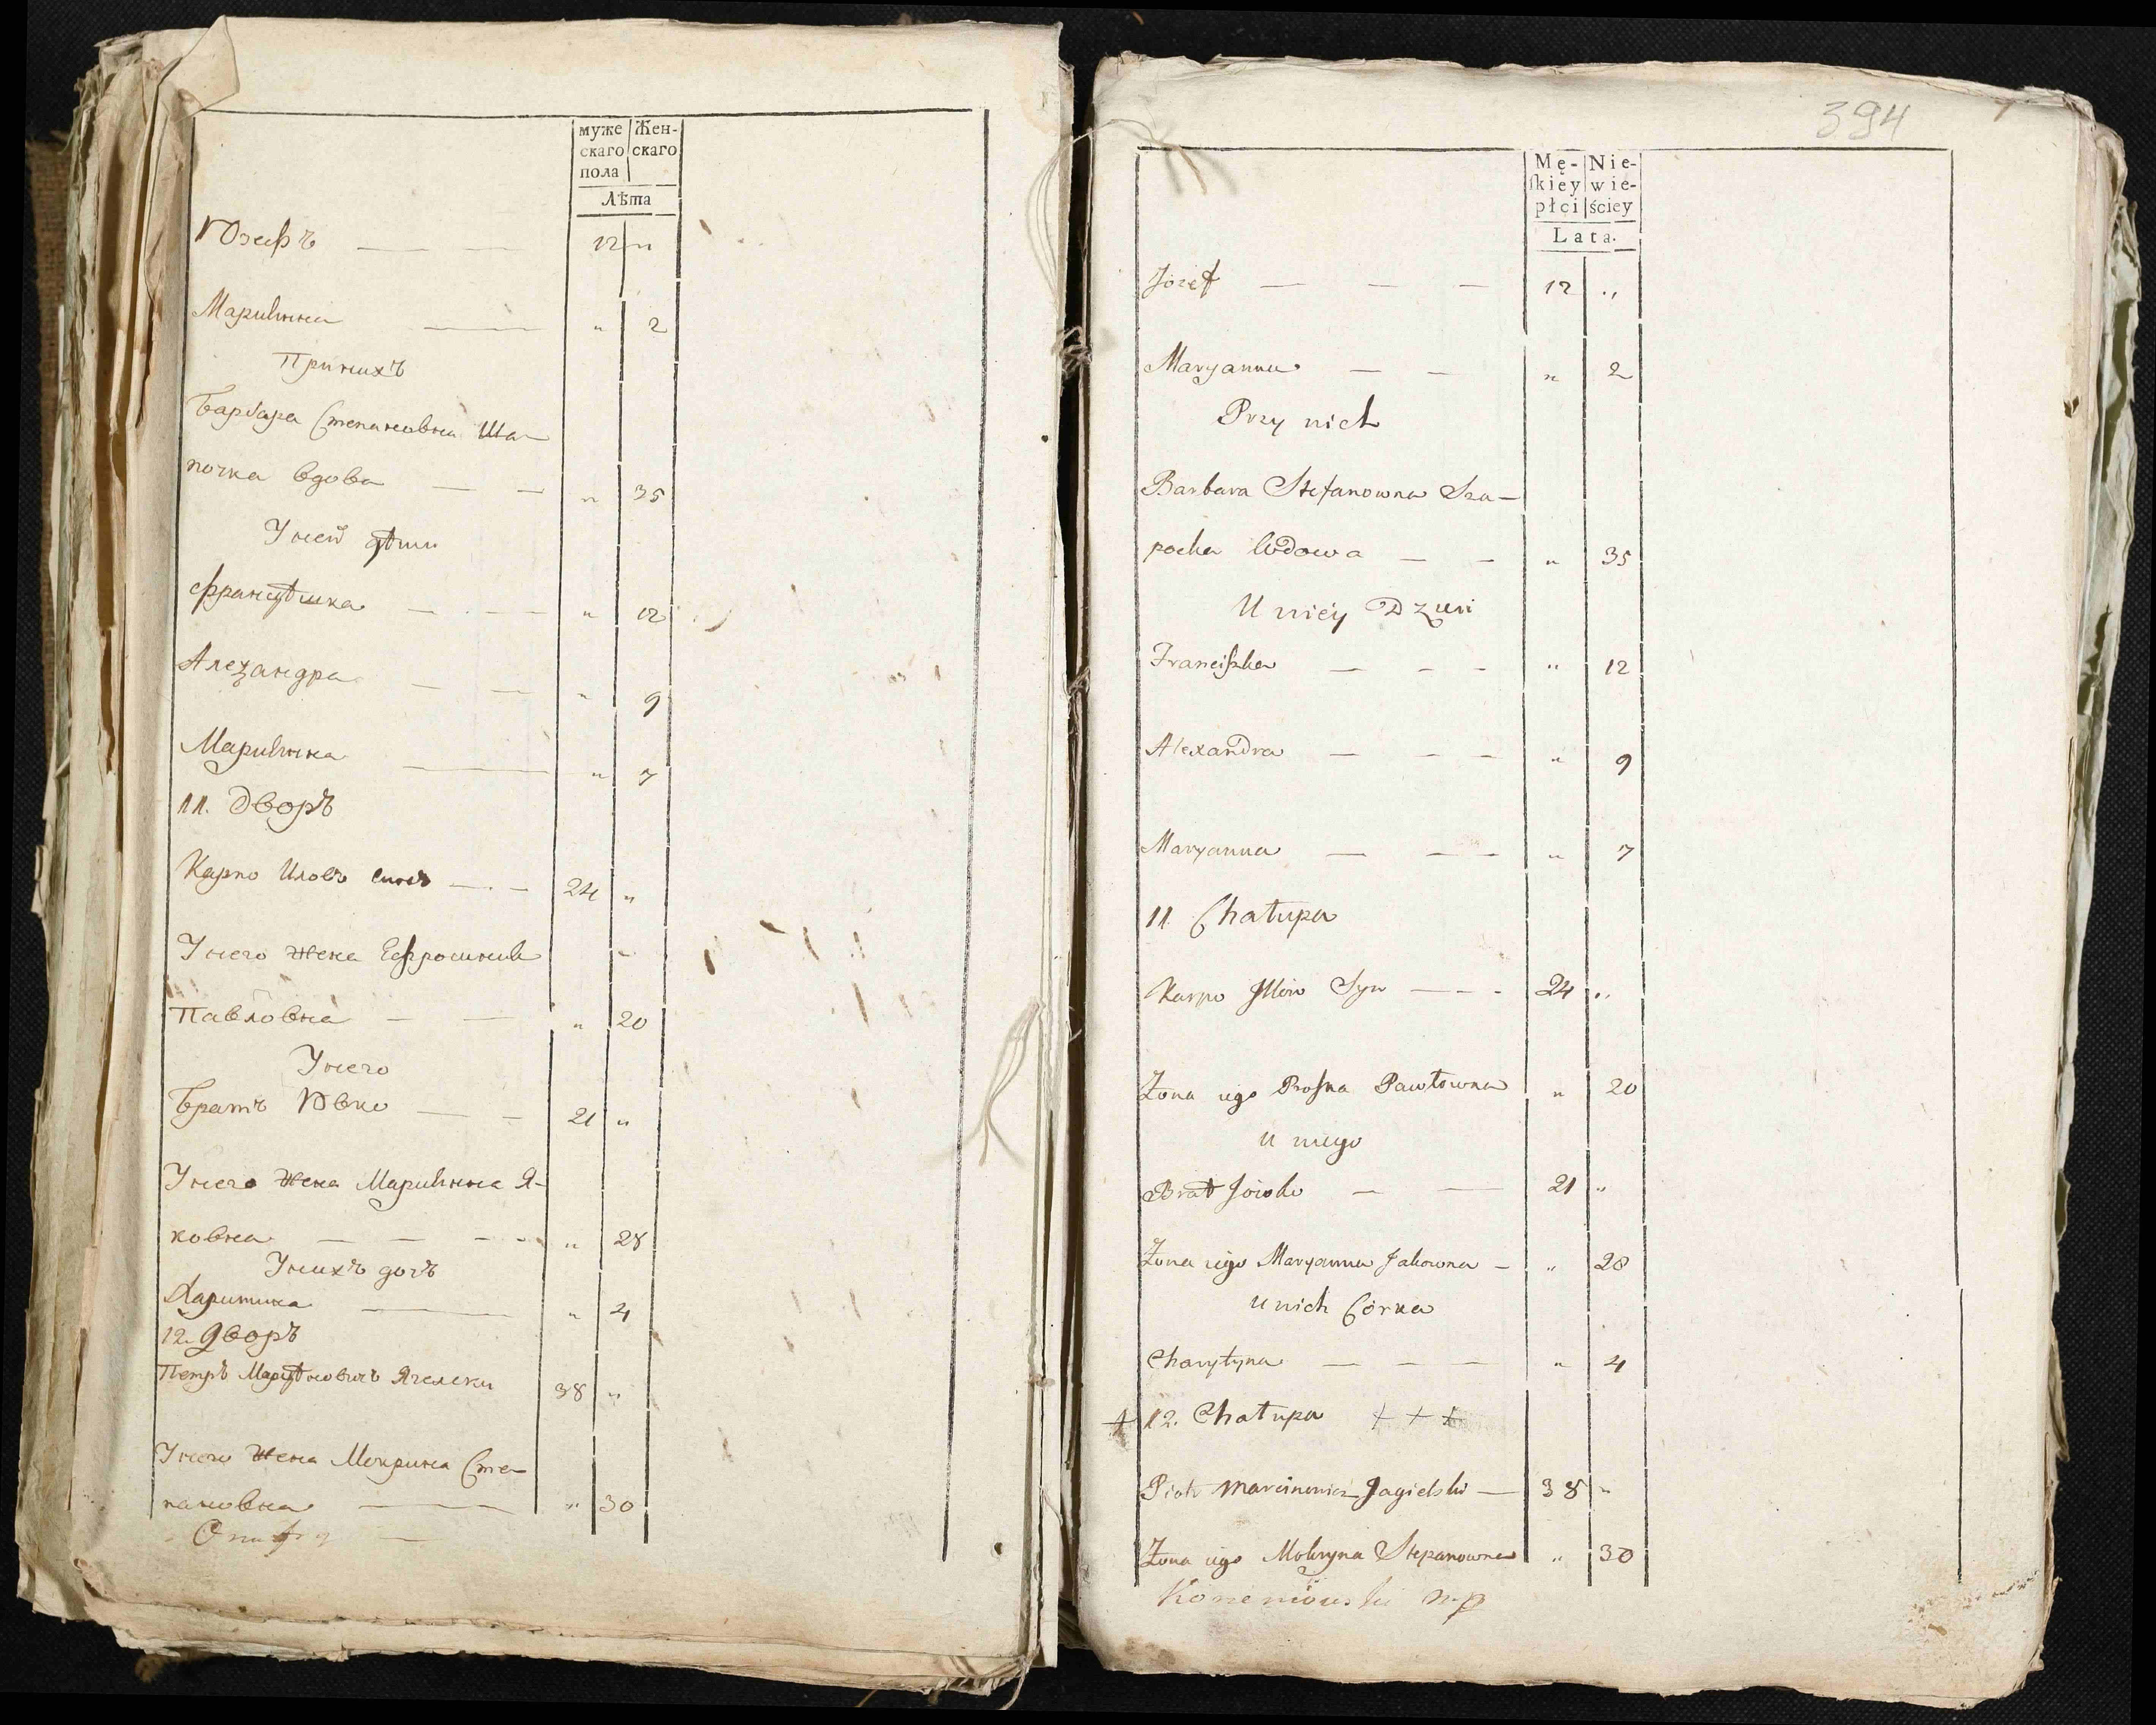 муже Жен-
скаго скаго
пола
Лѣта
Юзефъ — — 12 "
Марианна — " 2
При нихъ
Барбара Степановна Ша-
почка вдова — — " 35
У ней дѣти
Францѣшка — — — " 12
Алеѯандра — — " 9
Марианна — " 7
11. Дворъ
Карпо Иловъ синъ — — 24 "
У него жена Ефросиния
Павловна — — " 20
У него
Братъ Ювко — — 21 "
У него жена Марианна Я-
ковна — — — " 28
У нихъ дочъ
Харитина — " 4
12. Дворъ
Петръ Марцѣновичъ Ягелски 38 "
У него жена Мокрина Сте-
пановна — " 30
394
Mę- Nie-
skiey wie-
płci ściey
Lata.
Józef — — — 12 "
Maryanna — — " 2
Przy nich
Barbara Stefanowna Sza-
pocka Wdowa — — " 35
U niéy Dzieci
Franciszka — — — " 12
Alexandra — — — " 9
Maryanna — — — " 7
11. Chałupa
Karpo Jllów Syn — — - 24 "
Żona iego Prosna Pawłowna " 20
u niego
Brat Jówko — — 21 "
Żona iego Maryanna Jakowna — " 28
u nich Córka
Charytyna — — — " 4
+ 12. Chałupa + + +
Piotr Marcinowicz Jagielski — 38 "
Żona iego Mokryna Stepanowna " 30
mp